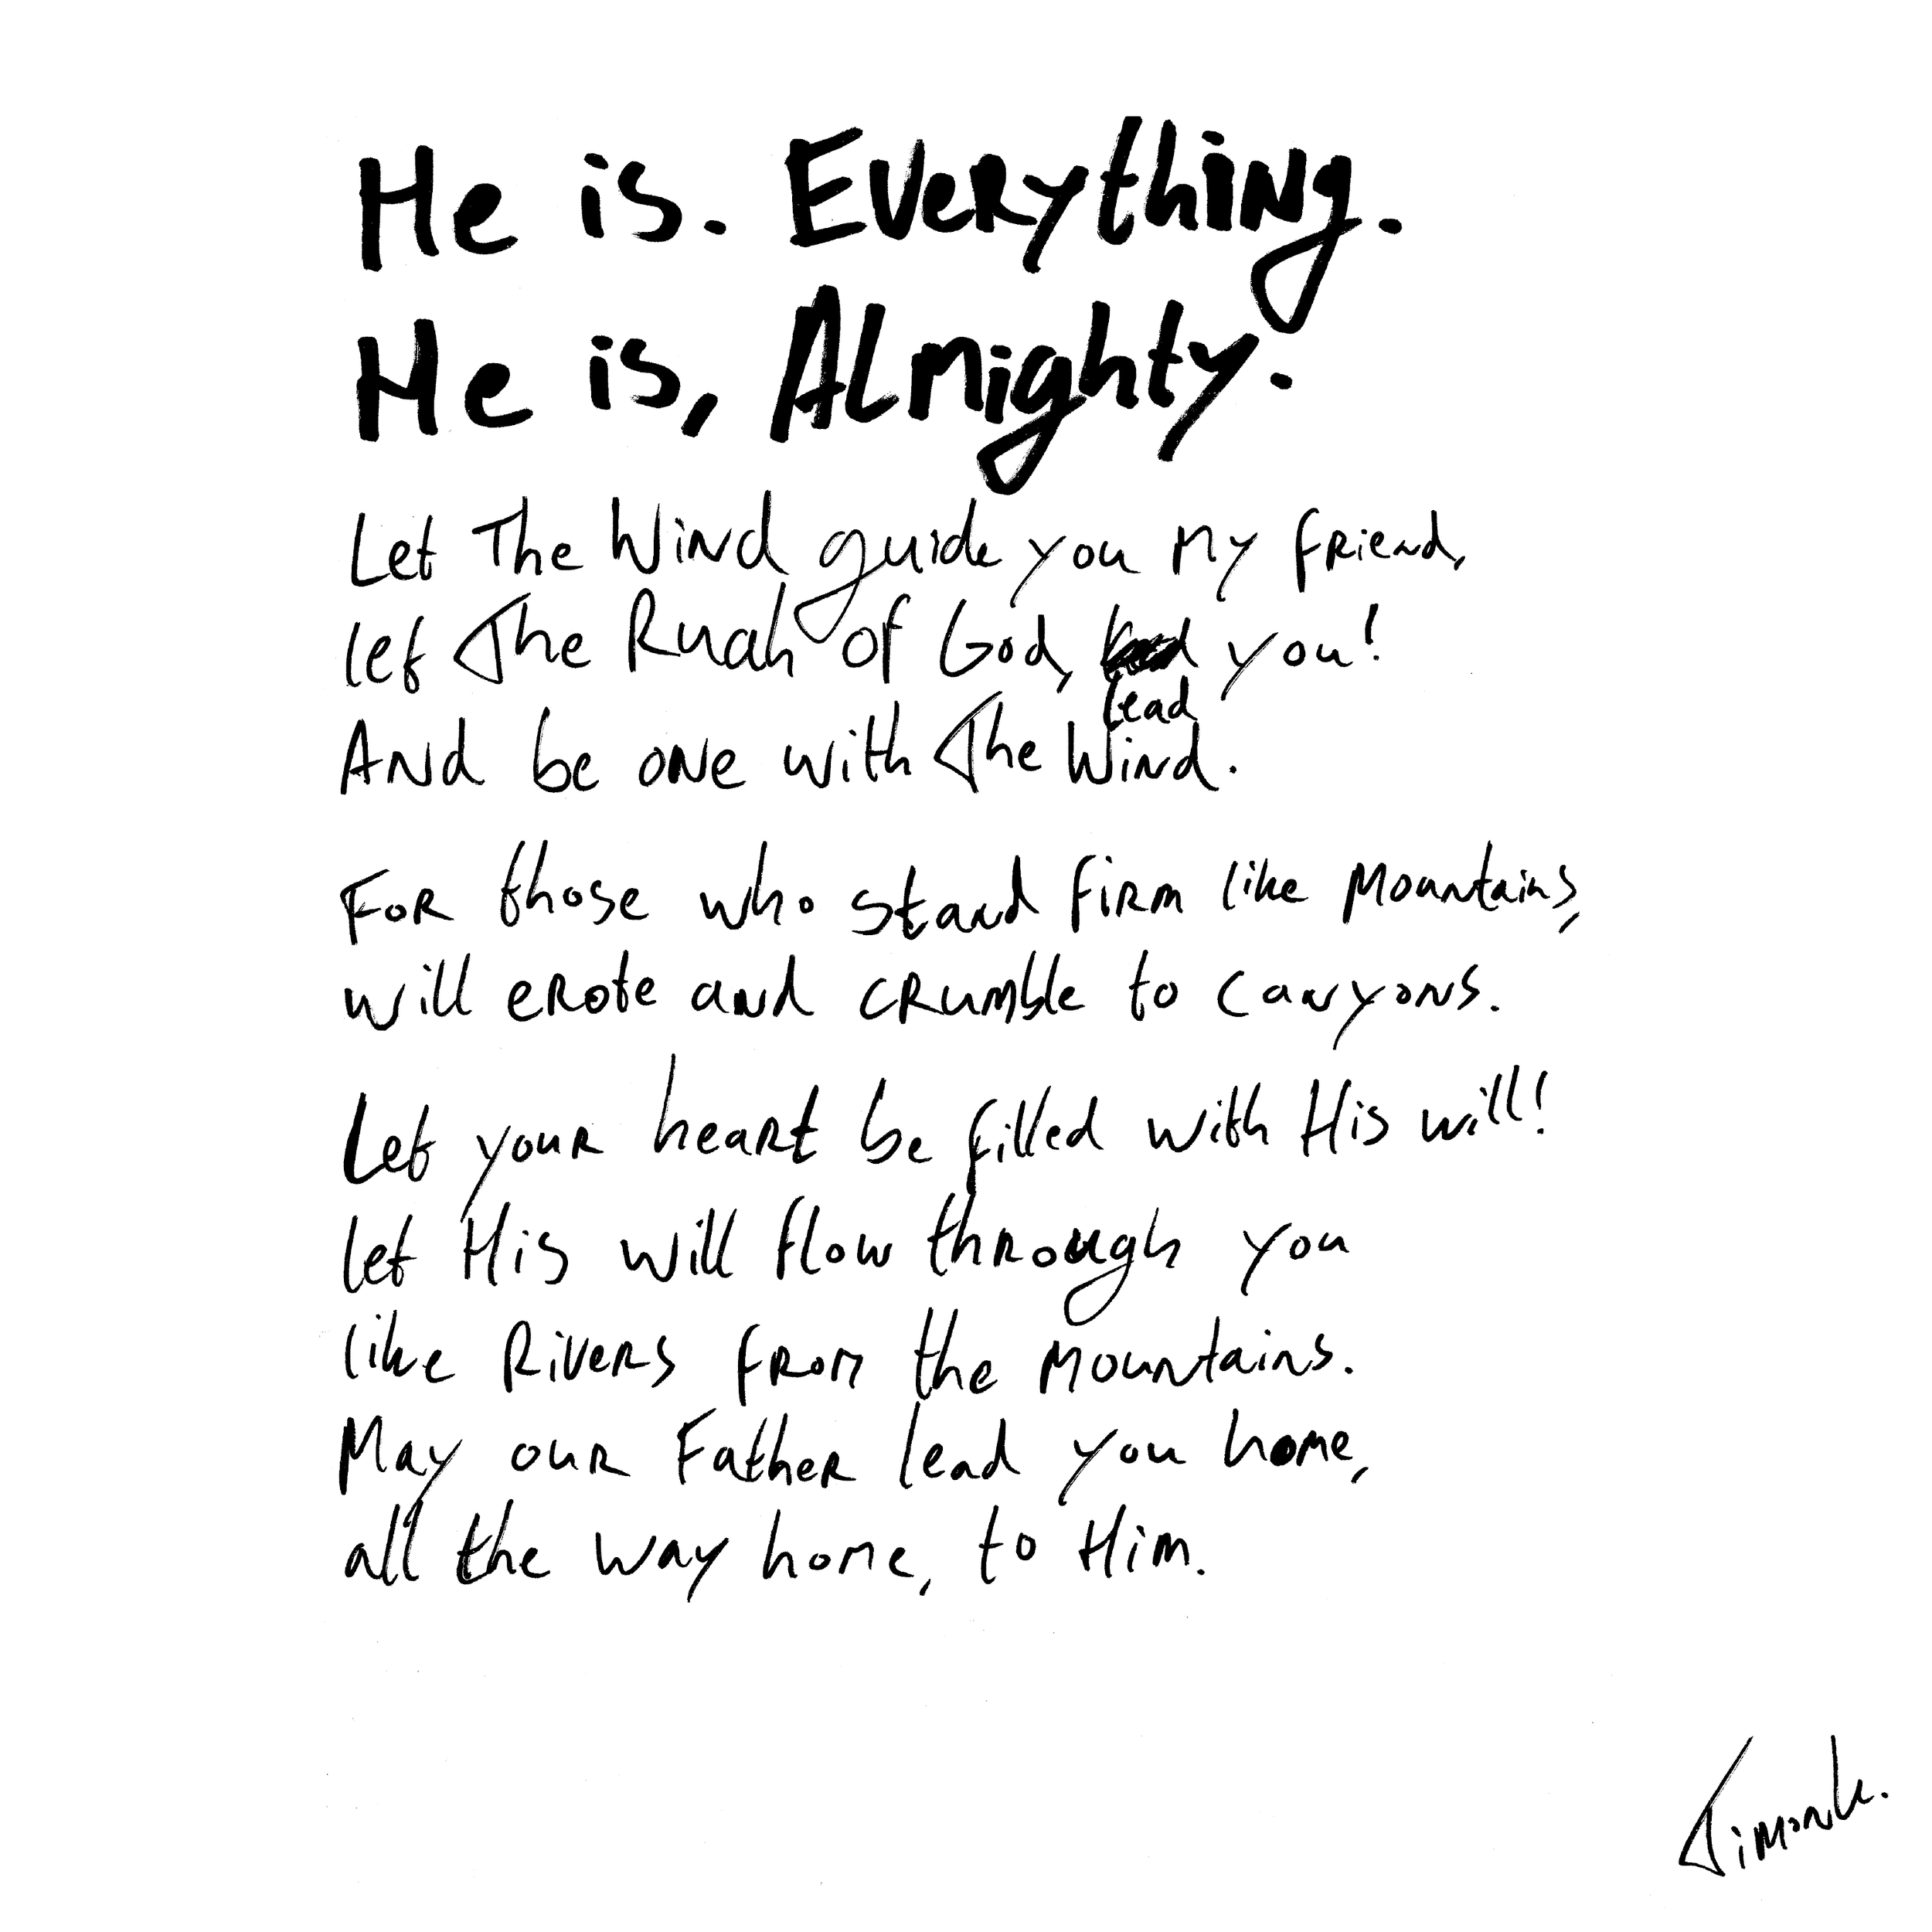 He is. Everything.
He is, Almighty.
Let The Wind guide you my friend,
let The Ruah of God, lead you!
And be one with The Wind.
For those who stand firm like Mountains,
will erote and crumble to canyons.
Let your heart be filled with His will!
let His will flow through you
like Rivers from the mountains.
May our Father lead you home,
all the way home, to Him.